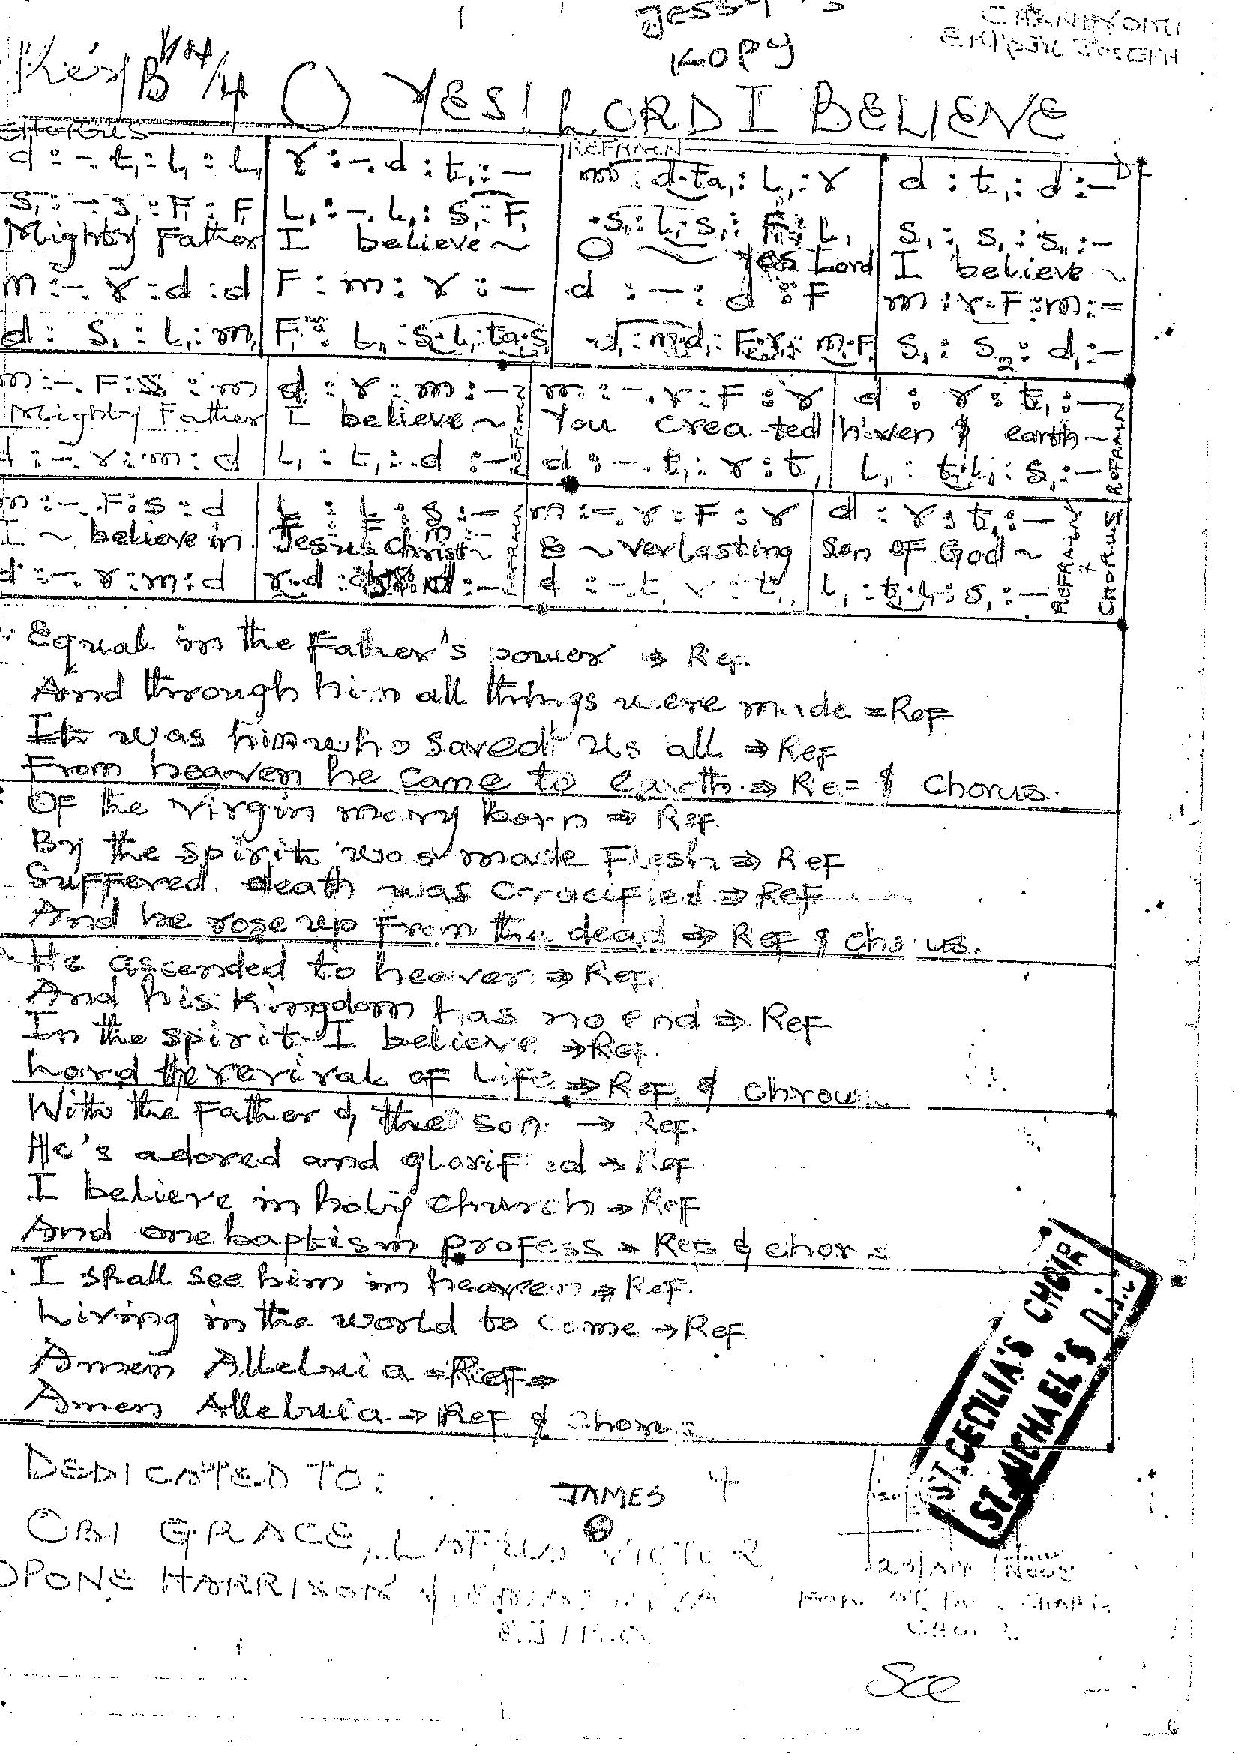 Jessy's
Kopy
JOSEPH
Key B 4/4 O YES! LORD I BELIEVE
CHORUS
REFRAIN
D.F
d :-. t₁ : l₁ : l₁ | r :-. d : t₁ :- | m : d.ta₁ : l₁ : r | d : t₁ : d :-
s₁ :-. s₁ : F₁ : F₁ | l₁ :-. l₁ : s₁ . F₁ | .s₁ : l₁ . s₁ : F₁ : l₁ | s₁ : s₁ : s₁ :-
Mighty Father | I believe~ | O ~ Yes Lord | I believe~
m :-. r : d : d | F : m : r :- | d :- : d : F | m : r.F : m :-
d : s₁ : l₁ : m₁ | F₁ : l₁ : s₁.l₁ : ta₁.s₁ | .d₁ : m₁.d₁ : F₁.r₁ : m₁.F₁ | s₁ : s₂ : d₁ :-
m :-. F : s : m | d : r : m :- REFRAIN | m :-. r : F : r | d : r : t₁ :- REFRAIN
Mighty Father | I believe~ | You crea-ted | heven & earth~
d :-. r : m : d | l₁ : t₁ :. d :- | d :-. t₁ : r : t₁ | l₁ : t₁.l₁ : s₁ :-
m :-. F : s : d | l : l : s :- REFRAIN | m :-. r : F : r | d : r : t₁ :- REFRAIN + CHORUS
I ~ believe in | Jesus Christ~ | E ~ verlasting | Son of God~
d :-. r : m : d | r.d :- | d :-. t₁ : r : t₁ | l₁ : t₁.l₁ : s₁ :-
Equal in the Father's power ⇒ Ref.
And through him all things were made ⇒ Ref
It was him who saved us all ⇒ Ref
From heaven he came to earth ⇒ Ref & Chorus.
Of the virgin mary born ⇒ Ref.
By the spirit was made Flesh ⇒ Ref
Suffered death was crucified ⇒ Ref
And he rose up from the dead ⇒ Ref & chorus.
He ascended to heaven ⇒ Ref.
And his kingdom has no end ⇒ Ref
In the spirit I believe ⇒ Ref.
Lord the revival of Life ⇒ Ref & chorous
With the Father & the son → Ref.
He's adored and glorified → Ref
I believe in holy church → Ref
And one baptism profess → Ref & chorus
I shall see him in heaven ⇒ Ref.
Living in the world to come → Ref
Amen Alleluia → Ref
Amen Alleluia → Ref & Chorus
DEDICATED TO:
JAMES
OBI GRACE, VICTOR
OPONE HARRISON &
ST. CECILIA'S CHOIR
ST. MICHAEL'S
See